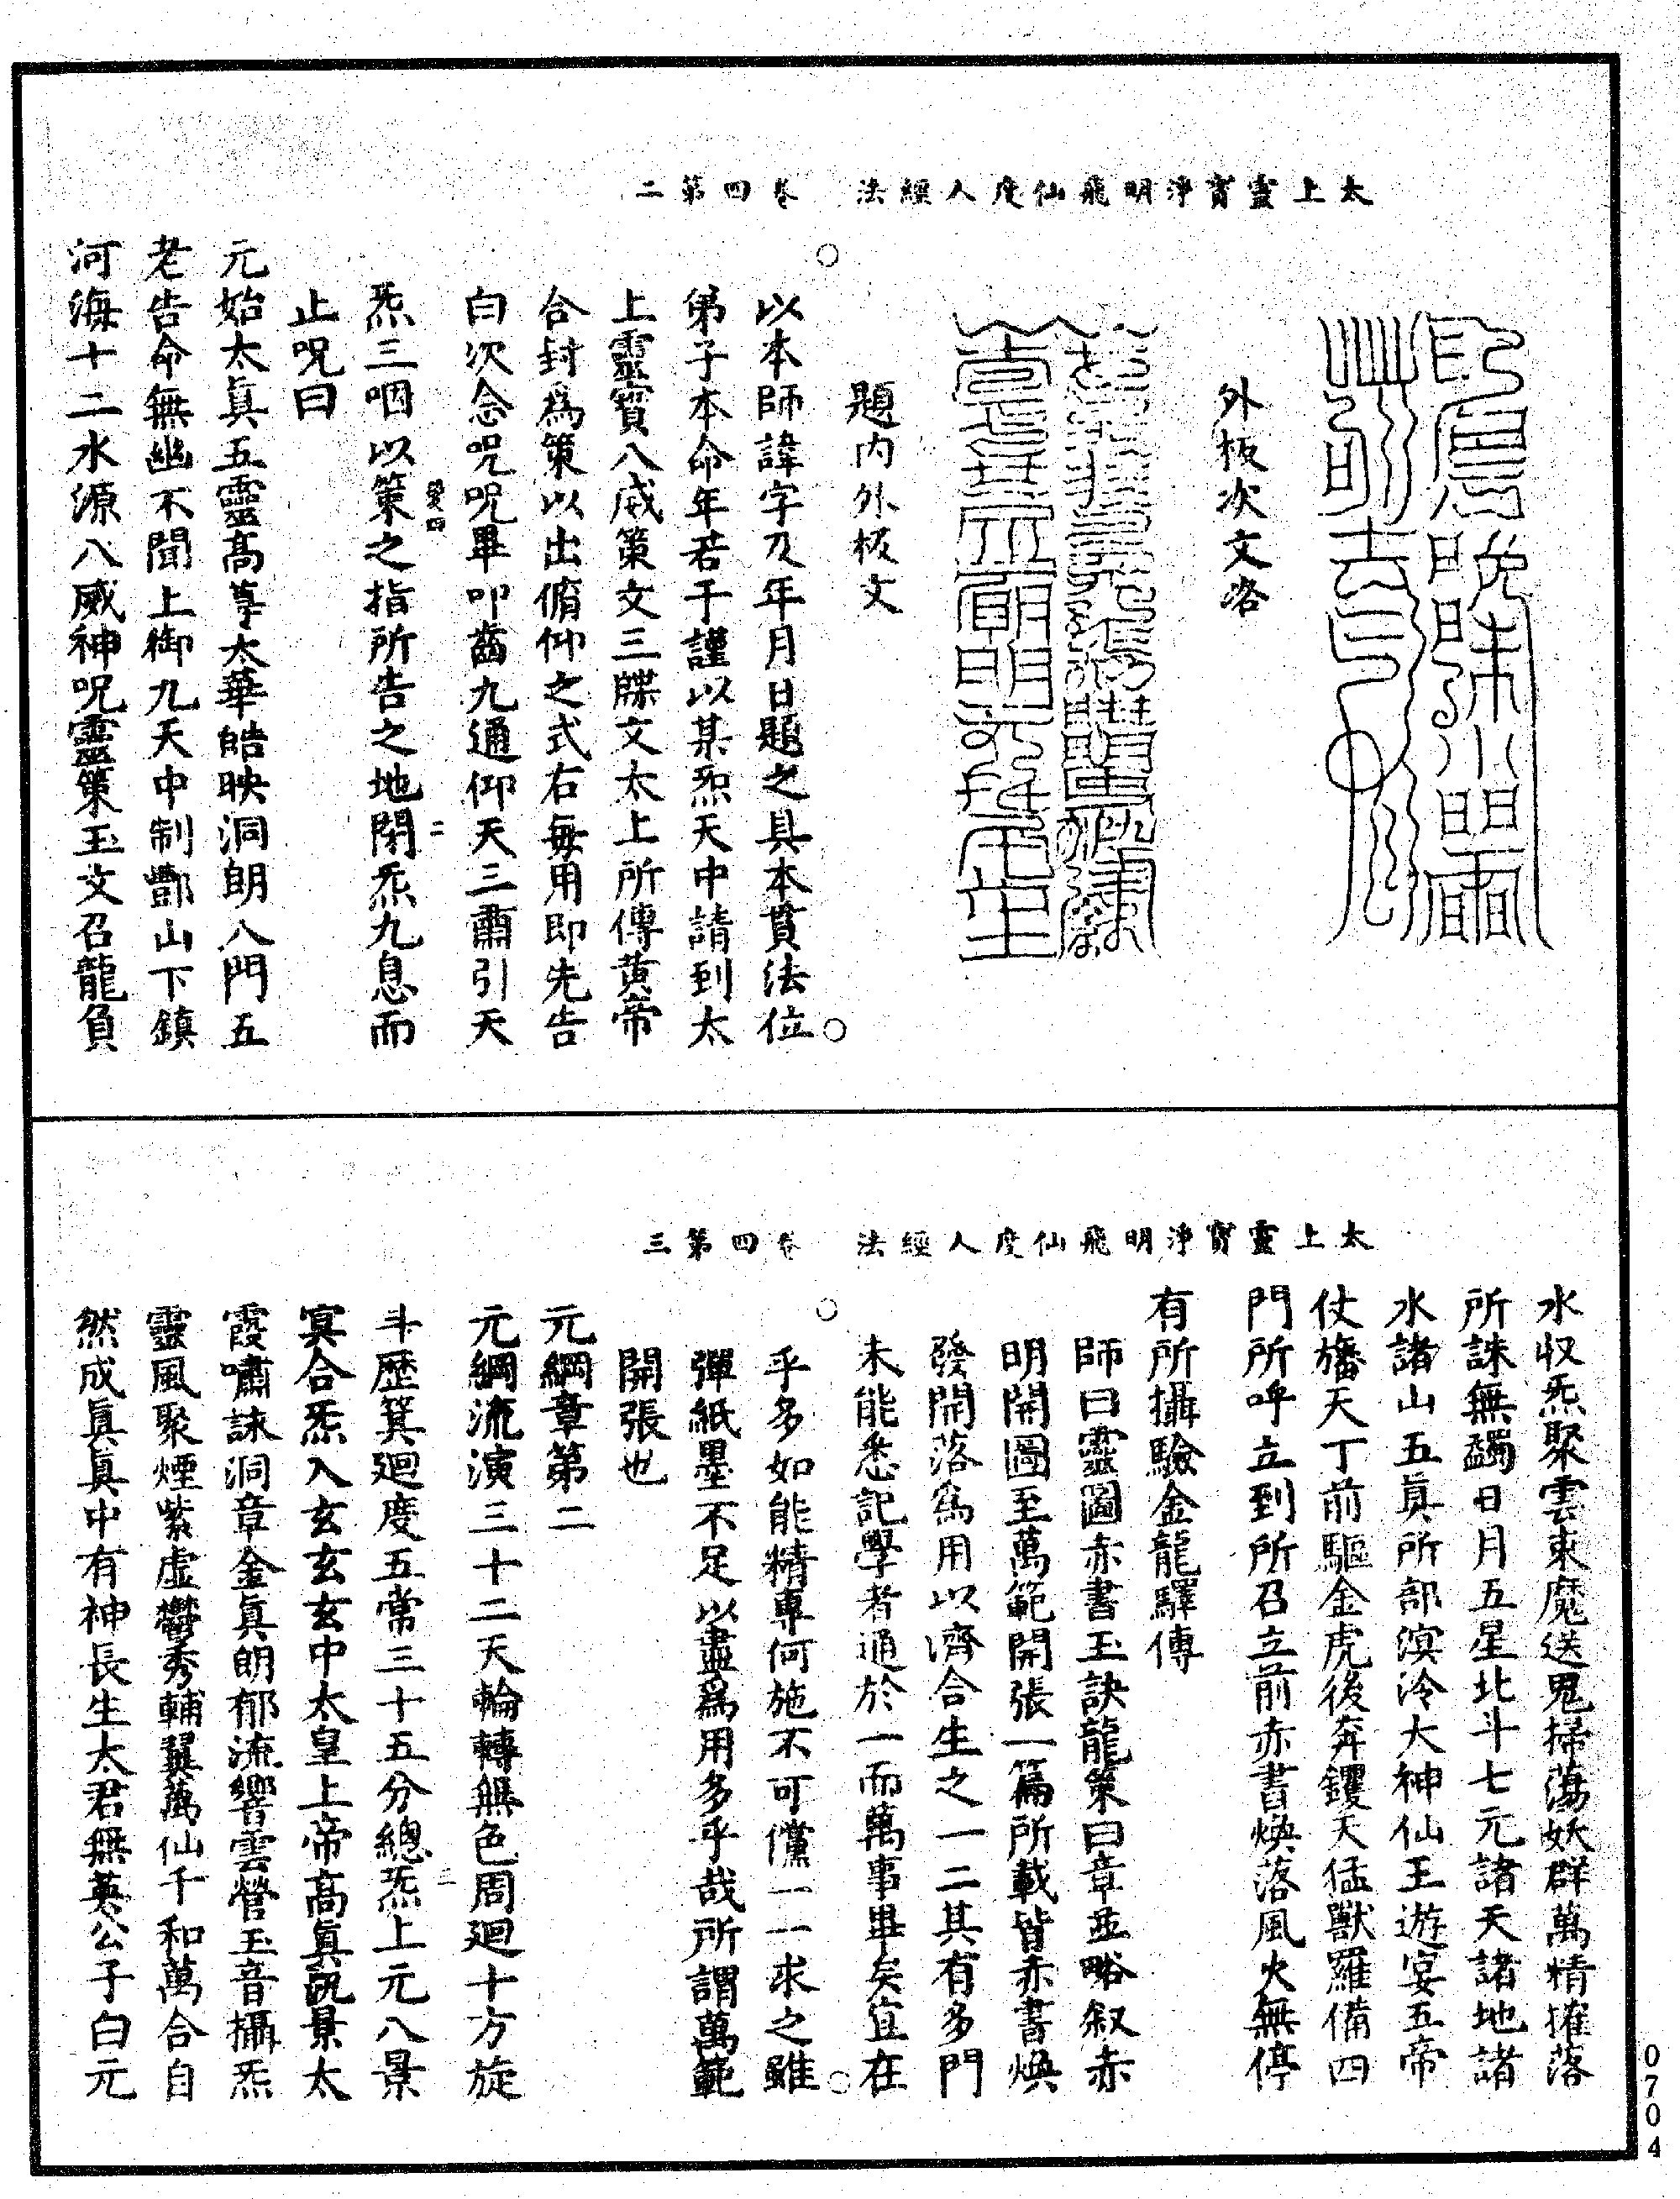 太上靈寶淨明飛仙度人經法　卷四第二
外板次文咯
題內外板文
以本師諱字及年月日題之具本貫法位
弟子本命年若干謹以某炁天中請到太
上靈寶八威策文三牒文太上所傳黃帝
合封爲策以出俯仰之式右每用即先告
白次念呪呪畢叩齒九通仰天三肅引天
炁三咽以策之指所告之地閉炁九息而
止呪曰
元始太眞五靈高尊太華皓映洞朗八門五
老告命無幽不聞上御九天中制酆山下鎮
河海十二水源八威神呪靈策玉文召龍負
太上靈寶淨明飛仙度人經法　卷四第三
水収炁聚雲束魔送鬼掃蕩妖群萬精摧落
所誅無蠲日月五星北斗七元諸天諸地諸
水諸山五眞所部溟泠大神仙王遊宴五帝
仗旛天丁前驅金虎後奔钁天猛獸羅備四
門所呼立到所召立前赤書煥落風火無停
有所攝驗金龍驛傳
師曰靈圖赤書玉訣龍策曰章並略叙赤
明開圖至萬範開張一篇所載皆赤書煥
發開落爲用以濟合生之一二其有多門
未能悉記學者通於一而萬事畢矣宜在
乎多如能精專何施不可儻一一求之雖
彈紙墨不足以盡爲用多乎哉所謂萬範
開張也
元綱章第二
元綱流演三十二天輪轉無色周迴十方旋
斗歷箕廻度五常三十五分總炁上元八景
冥合炁入玄玄玄中太皇上帝高眞汎景太
霞嘯詠洞章金眞朗郁流響雲營玉音攝炁
靈風聚煙紫虛鬱秀輔翼萬仙千和萬合自
然成眞眞中有神長生太君無英公子白元
0704